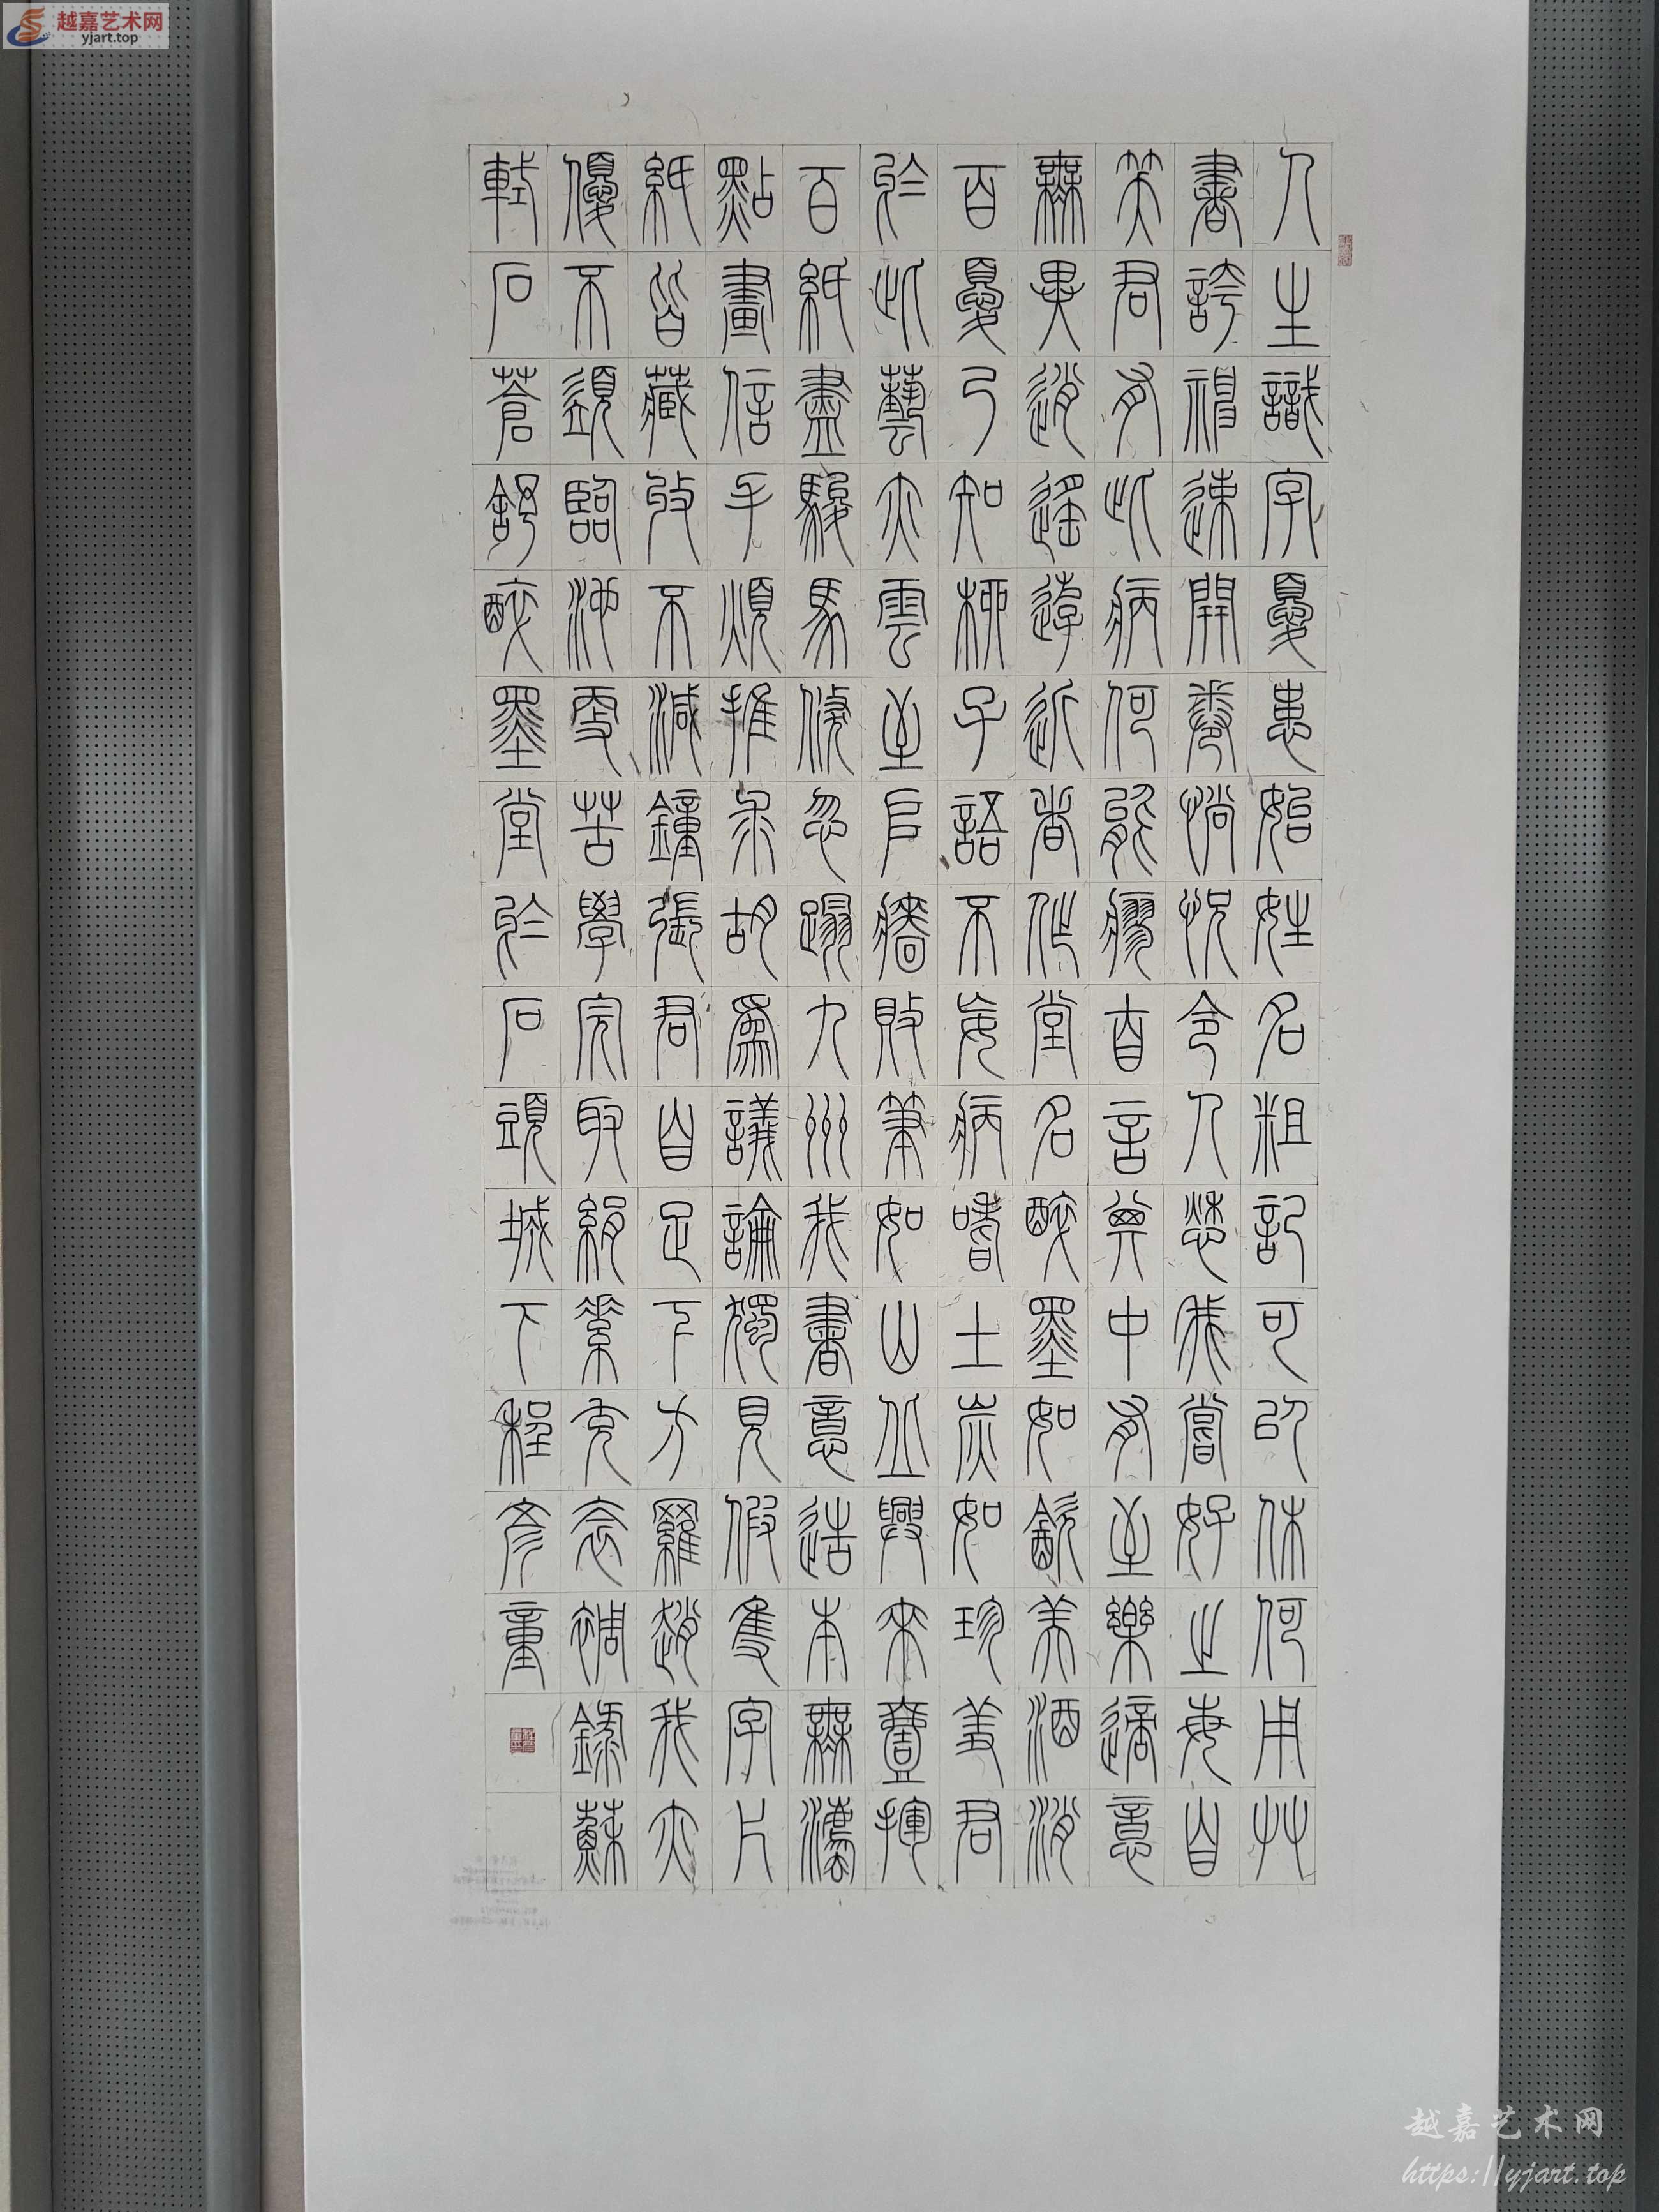 越嘉艺术网
yjart.top
人生識字憂患始姓名粗記可以休何用艸
書誇神速開卷惝怳令人愁我嘗好之每自
笑君有此病何能瘳自言其中有至樂適意
無異逍遙遊近者作堂名醉墨如飲美酒消
百憂乃知柳子語不妄病嗜土炭如珍羞君
於此藝亦雲至戶牆敗筆如山丘興來壹揮
百紙盡駿馬倏忽蹋九州我書意造本無灋
點畫信手煩推求胡為議論獨見假隻字片
紙皆藏收不減鐘張君自足下方羅趙我亦
優不須臨池更苦學完取絹素充衾裯錄蘇
軾石蒼舒醉墨堂於石頭城下程彥童
越嘉艺术网
https://yjart.top